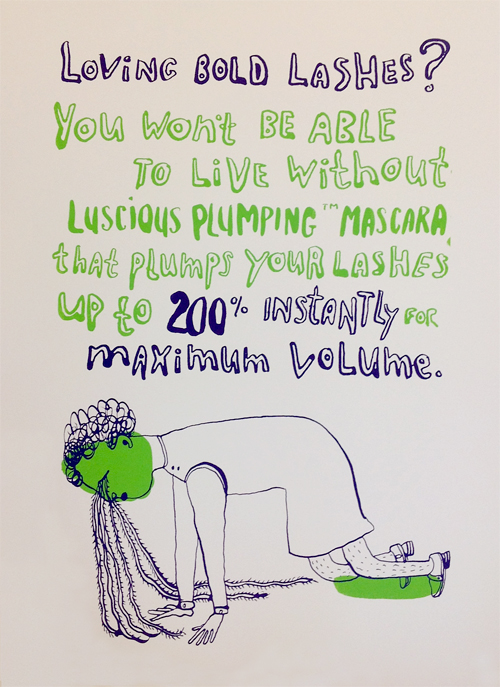 Loving BOLD LASHES?
You won't BE ABLE
TO LiVE without
LUSCIOUS PLUMPING™ MASCARA
that plumps YOUR LASHES
up to 200% INSTANTLY FOR
mAXimum VOLUme.